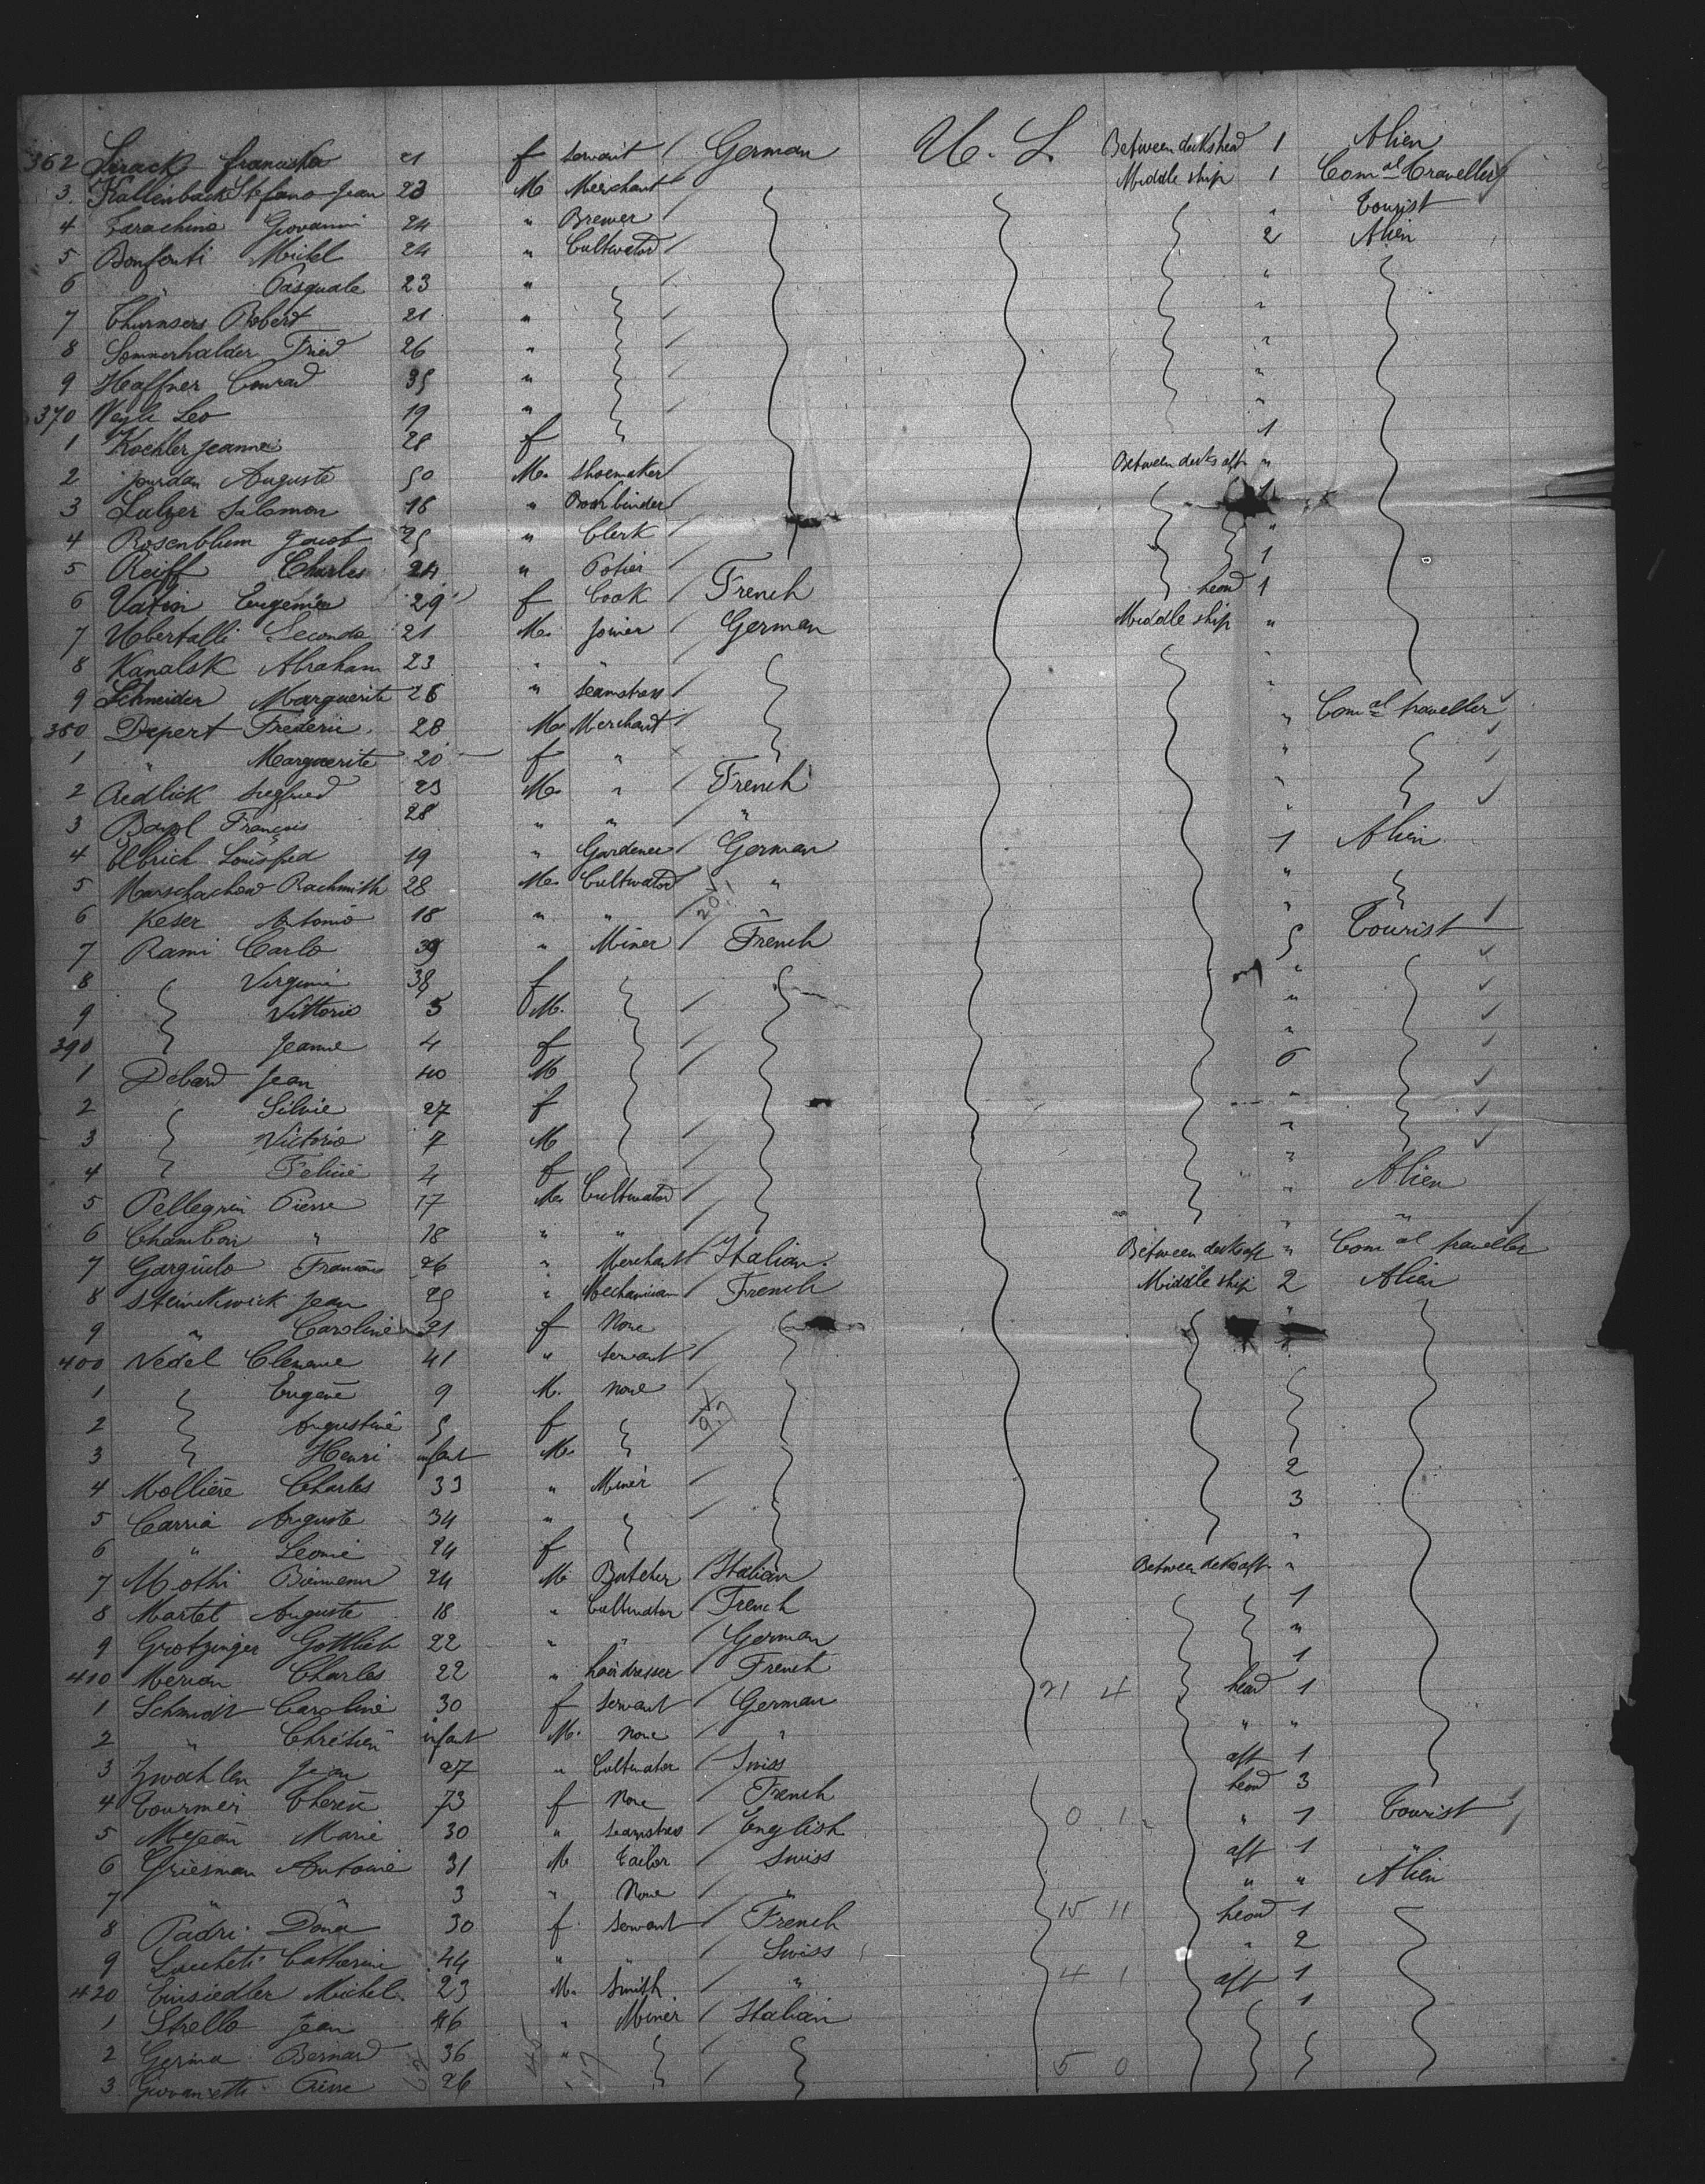 362 Sirack Franciska 21 f servant / German U. S. Between decks head 1 Alien
3. Kallenback Stefano Jean 23 M Merchant / Middle ship 1 Com al Traveller
4 Farachino Giovanni 24 " Brewer / " Tourist
5 Bonfonti Michel 24 " Cultivator / 2 Alien
6 " Pasquale 23 " / "
7 Robert 21 " / "
8 Sommerhalder Fried 26 " / "
9 Haffner Conrad 35 " / "
370 Leo 19 " / "
1 Koehler Jeanne 28 f 1
2 Jourdan Auguste 50 M. shoemaker / Between decks aft "
3 Salomon 18 " Bookbinder / 1
4 Rosenblum Jacob 25 " Clerk / "
5 Reiff Charles 24 " Potier 1
6 Vatin Eugenie 29 f Cook / French head 1
7 Ubertalli Secondo 21 M. joiner / German Middle ship "
8 Kanalsk Abraham 23 " " "
9 Schneider Marguerite 26 " seamstress / "
380 Depert Frederic 28 M. Merchant / " Com al traveller
1 " Marguerite 20 f " "
2 Redlick Siegfried 23 M. " French "
3 François 28 " " " "
4 Louis fred 19 " Gardener / German 1 Alien
5 Marschachow Rachmith 28 M. Cultivator / " "
6 Keser Antonio 18 " " / " "
7 Rami Carlo 39 " Miner / French 5 Tourist
8 Virginie 38 f "
9 Vittorio 5 M. / "
390 Jeanne 4 f / "
1 Debard Jean 40 M / 6
2 Silvie 27 f "
3 Victorio 7 M / "
4 Felicie 4 f / "
5 Pellegrin Pierre 17 M. Cultivator / " Alien
6 Chambon " 18 " " / " "
7 Gargiulo François 26 " Merchant / Italian. Between decks aft " Com al traveller
8 Steinckwick Jean 25 " Mechanician French Middle ship 2 Alien
9 " Caroline 21 f None "
400 Vedel Clemence 41 " servant / 
1 Eugene 9 M. none /
2 Augustine 5 f /
3 Henri infant M. /
4 Mollière Charles 33 " Miner / 2
5 Carria Auguste 34 " / 3
6 " Leonie 24 f "
7 Mothi Bienvenu 24 M. Butcher / Italian Between decks aft "
8 Martel Auguste 18 " Cultivator / French 1
9 Grotzinger Gottlieb 22 " " German "
410 Merian Charles 22 " hairdresser / French 1
1 Schmidt Caroline 30 f servant / German 21 4 head 1
2 " Chrétien infant M. none / " " "
3 Zwahlen Jean 27 " Cultivator / Swiss aft 1
4 73 f None / French head 3
5 Mejean Marie 30 " seamstress / English 0 1 " 1 Tourist
6 Griesman Antoine 31 M Tailor / Swiss aft 1 "
7 " " 3 " None / " " " Alien
8 Padri Dona 30 f servant / French 15 11 head 1
9 Luccheti Catherine 44 " " / Swiss " 2
420 Einsiedler Michel. 23 M. Smith / " 4 1 aft 1
1 Strello Jean 46 " Miner / Italian 1
2 Gerina Bernard 36 " /
3 Giovanetti Pierre 26 / 5 0